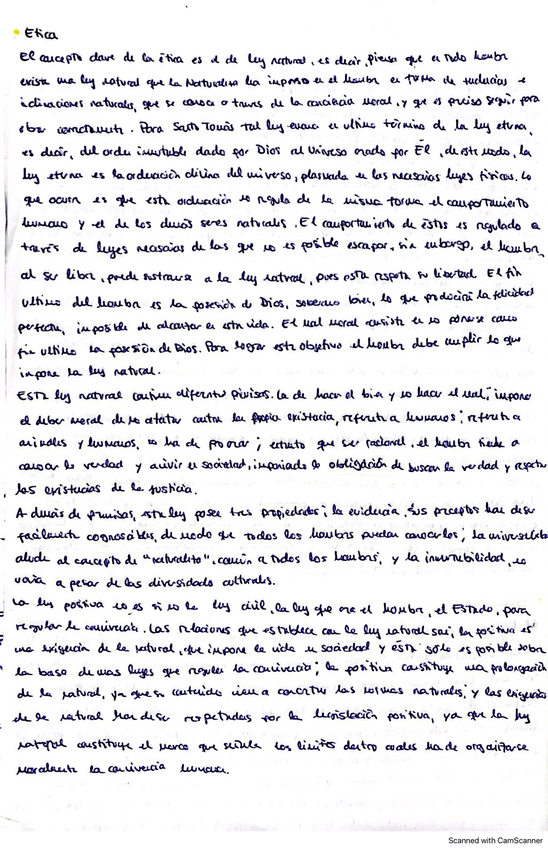 • Etica
El concepto clave de la ética es el de ley natural, es decir, piensa que en todo hombre
existe una ley natural que la Naturaleza ha impreso en el hombre en forma de tendencias e
inclinaciones naturales, que se conoce a traves de la conciencia moral, y que es preciso seguir para
obrar correctamente. Para Santo Tomás tal ley emana en ultimo término de la ley eterna,
es decir, del orden inmutable dado por Dios al Universo creado por Él, de este modo, la
ley eterna es la ordenación divina del universo, plasmada en las necesarias leyes fisicas. Lo
que ocurre es que esta ordenación no regula de la misma forma el comportamiento
humano y el de los demás seres naturales. El comportamiento de éstos es regulado a
través de leyes necesarias de las que no es posible escapar, sin embargo, el hombre,
al ser libre, puede sustraerse a la ley natural, pues esta respeta su libertad. El fin
ultimo del hombre es la posesión de Dios, soberano bien, lo que producirá la felicidad
perfecta, imposible de alcanzar en esta vida. El mal moral consiste en no ponerse como
fin ultimo la posesión de Dios. Para lograr este objetivo el hombre debe cumplir lo que
impone la ley natural.
Esta ley natural contiene diferentes premisas. La de hacer el bien y no hacer el mal, impone
el deber moral de no atentar contra la propia existencia, referente a humanos; referente a
animales y humanos, se ha de procrear; en tanto que ser racional, el hombre tiende a
conocer la verdad y a vivir en sociedad, imponiendo la obligación de buscar la verdad y respetar
las existencias de la justicia.
A demás de premisas, esta ley posee tres propiedades; la evidencia, sus preceptos han de ser
facilmente cognoscibles, de modo que todos los hombres puedan conocerlos; la universalidad
alude al concepto de "naturaleza", común a todos los hombres, y la inmutabilidad, no
varía a pesar de las diversidades culturales.
La ley positiva no es si no la ley civil, la ley que crea el hombre, el Estado, para
regular la convivencia. Las relaciones que establece con la ley natural son; la positiva es
una exigencia de la natural, que impone la vida en sociedad y ésta sólo es posible sobre
la base de unas leyes que regulen la convivencia; la positiva constituye una prolongación
de la natural, ya que su contenido viene a concretar las normas naturales; y las exigencias
de la natural han de ser respetadas por la legislación positiva, ya que la ley
natural constituye el marco que señala los límites dentro cuales ha de organizarse
moralmente la convivencia humana.
Scanned with CamScanner